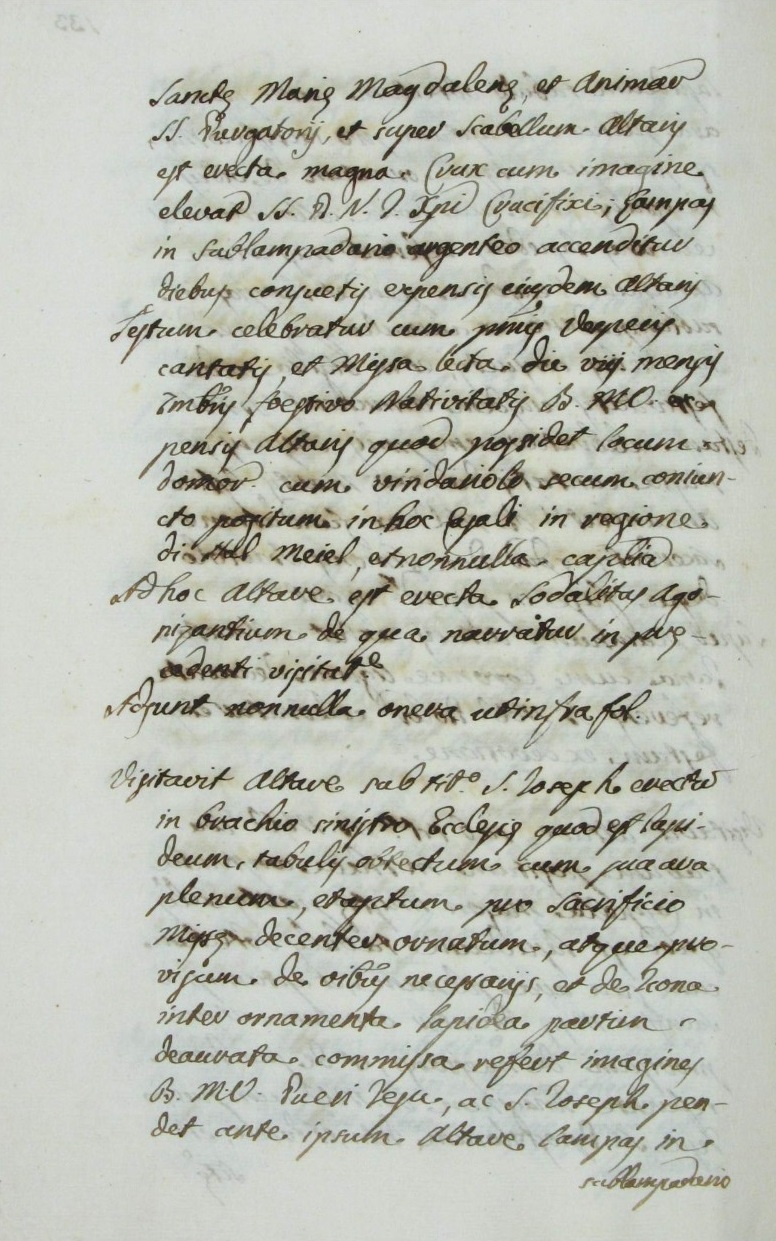 Sanctę Marię Magdalenę, et Animar
SS. Purgatorij, et super scabellum Altaris
est erecta magna Crux cum imagine
elevat SS. D. N. J. Xpi Crucifixi; Lampas
in sublampadario argenteo accenditur
diebus consuetis expensis eiusdem Altaris
Festum celebratur cum primis Vesperis
cantatis, et Missa lecta die viij mensis
festivo Nativitatis B. M. V. ex-
pensis Altaris quod possidet locum
domor cum viridariolo secum coniun-
cto positum in hoc Casali in regione
di Hal Meiel, et nonnulla capitalia
Ad hoc Altare est erecta Sodalitas Ago-
nizantium de qua narratur in prę-
cedenti visitat.e
Adsunt nonnulla onera ut infra fol.
Visitavit Altare sub tit.o S. Joseph erectu
in brachio sinistro Ecclesię quod est lapi-
deum, tabulis obtectum cum sua ara
plenum, et aptum pro sacrificio
Missę decenter ornatum, atque pro-
visum de oibus necessarijs, et de Icona
inter ornamenta lapidea partim
deaurata commissa refert imagines
B. M. V. Pueri Jesu, ac S. Joseph pen-
det ante ipsum Altare lampas in
sublampadario